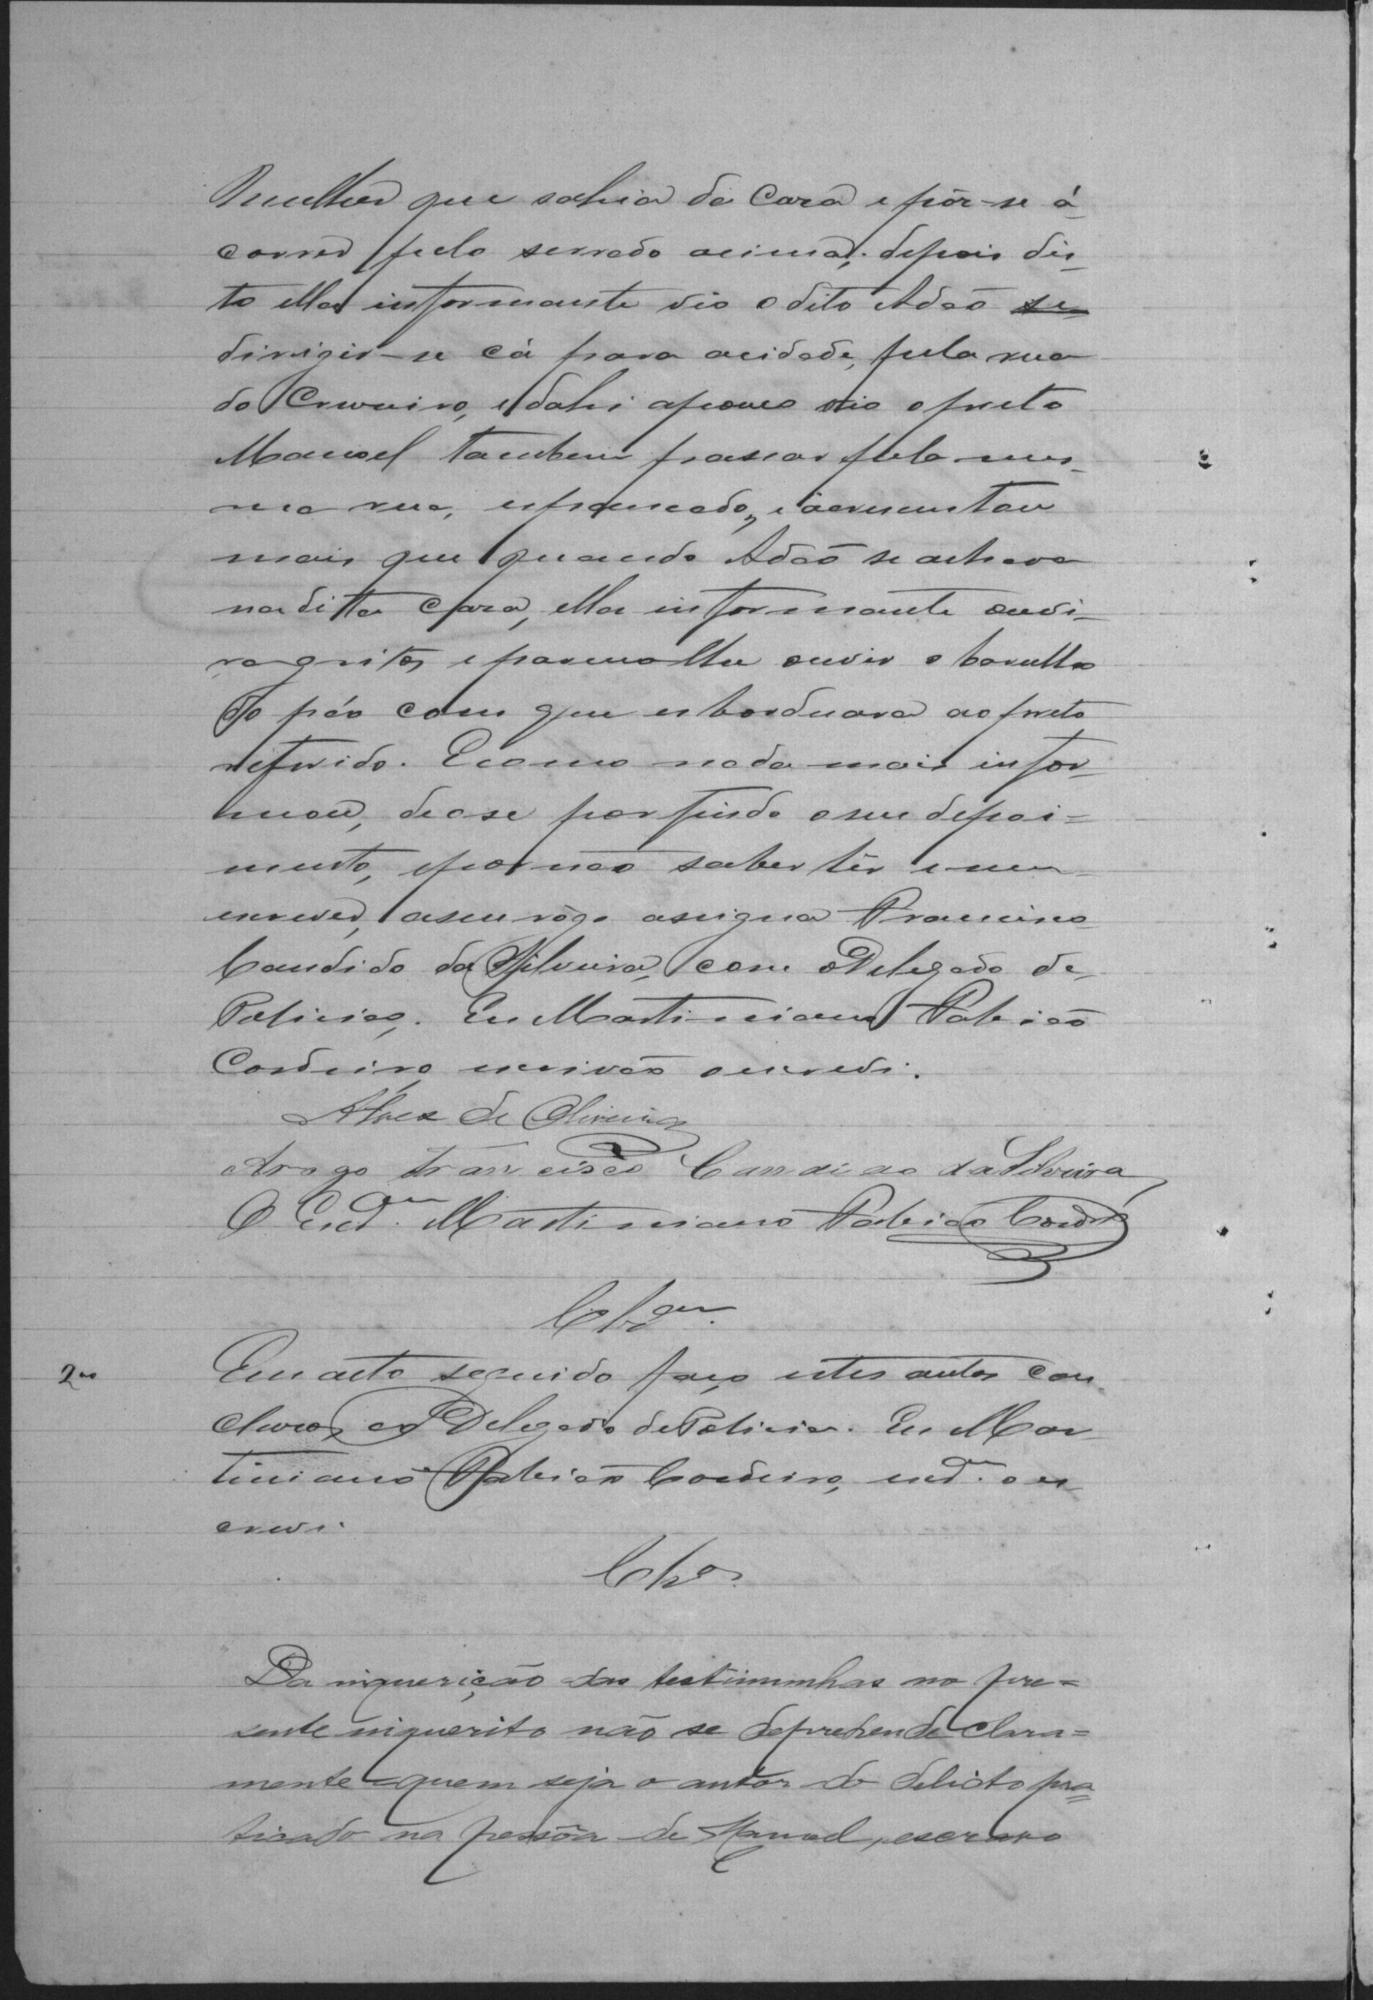 mulher que sahia da casa e pôr-se á
correr pelo serrado acima; depois dis-
to ella informante vio o dito Adão se
dirigir-se cá para a cidade, pela rua
do Cruzeiro, e dahi apouco vio o preto
Manoel tambem passar pela mes-
ma rua, espancado, e acrescentou
mais que quando Adão se achava
na ditta casa, ella informante ouvi-
ra gritos e pareceo lhe ouvir o barulho
do páo com que esbordoava ao preto
referido. E como nada mais infor-
mou, deo se por findo o seu depoi=
mento, e por não saber lêr e nem
escrever, a seu rôgo assigna Francisco
Candido da Silveira, com o Delegado de
Policia. Eu Martiniano Patricio
Cordeiro escrivão o escrevi.
Alves de Oliveira
Arogo Francisco Candido da Silveira
O Escr.am Martiniano Patricio Cord.ro
Clzam.
2$00
Em acto seguido faço estes autos con
clusos ao Delegado de Policia. Eu Mar
tiniano Patricio Cordeiro, escr.am o es
crevi.
Clzos.
Da inquerição das testimunhas no pre=
sente inquerito não se deprehende clara=
mente quem seja o autor do delicto pra=
ticado na pessôa de Manoel, escravo